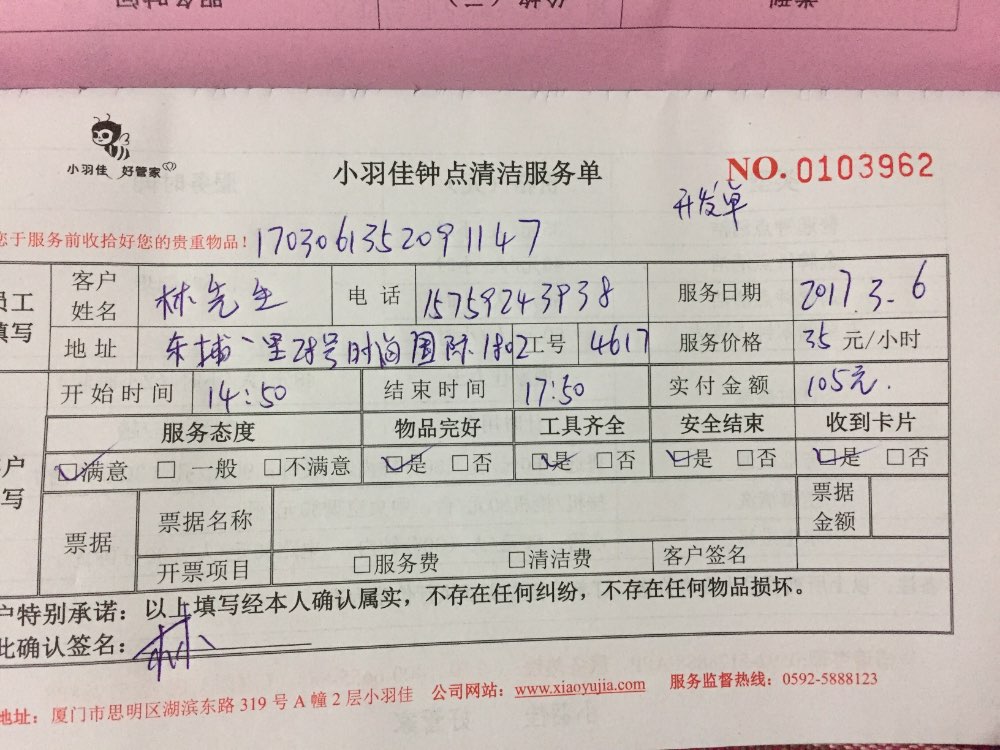 小羽佳 好管家
小羽佳钟点清洁服务单
NO. 0103962
开发单
您于服务前收拾好您的贵重物品!
1703061352091147
员工填写
客户姓名 林先生 电话 15759243938 服务日期 2017.3.6
地址 东埔一里28号时尚国际1802 工号 4617 服务价格 35 元/小时
开始时间 14:50 结束时间 17:50 实付金额 105元.
服务态度 物品完好 工具齐全 安全结束 收到卡片
户写
☑满意 □一般 □不满意 ☑是 □否 ☑是 □否 ☑是 □否 ☑是 □否
票据 票据名称 票据金额
开票项目 □服务费 □清洁费 客户签名
户特别承诺:以上填写经本人确认属实,不存在任何纠纷,不存在任何物品损坏。
此确认签名:林
地址:厦门市思明区湖滨东路 319 号 A 幢 2 层小羽佳 公司网站:www.xiaoyujia.com 服务监督热线:0592-5888123